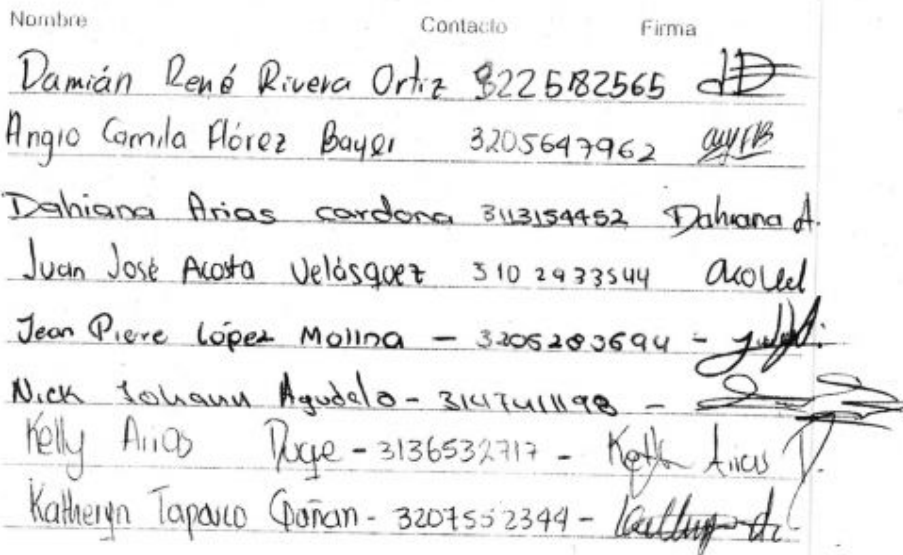 Nombre Contacto Firma
Damián René Rivera Ortiz 3225182565
Angie Camila Flórez Bayer 3205647962
Dahiana Arias cardona 3113154452 Dahiana A.
Juan José Acosta Velásquez 310 2933544 acovel
Jean Pierre López Molina - 3205283694 -
Nick Johann Agudelo - 3147411198 -
Kelly Arias Duque - 3136532717 - Kelly Arias D.
Katheryn Tapasco - 3207552344 -